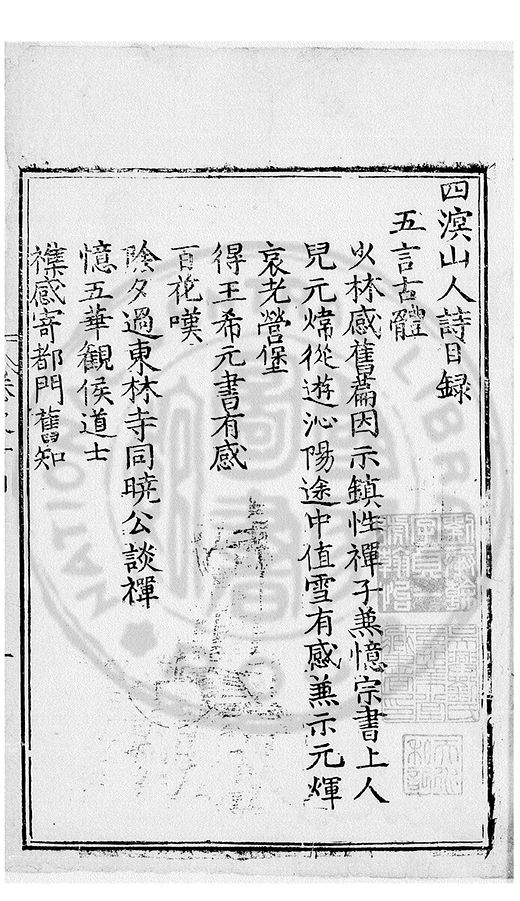 四溟山人詩目録
五言古體
少林感舊篇因示鎮性禪子兼憶宗書上人
兒元煒從遊沁陽途中值雪有感兼示元輝
哀老營堡
得王希元書有感
百花嘆
陰夕過東林寺同曉公談禪
憶五華觀侯道士
襍感寄都門舊知